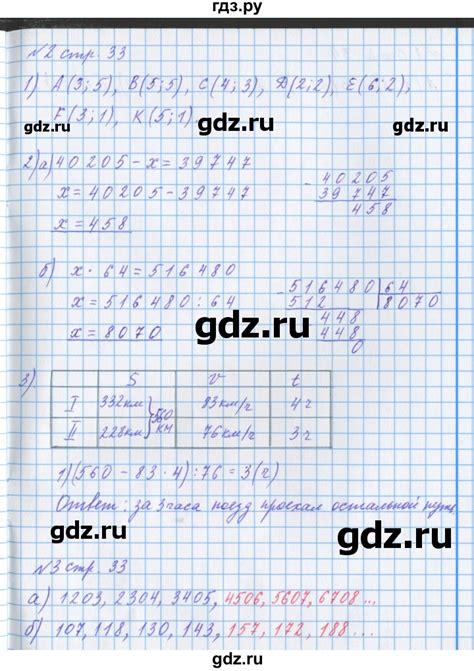 гдз.ру
№2 стр. 33
1) A(3;5), B(5;5), C(4;3), D(2;2), E(6;2),
F(3;1), K(5;1).
gdz.ru
gdz.ru
gdz.ru
2) а) 40205 - x = 39747
x = 40205 - 39747
x = 458
- 40205
39747
458
gdz.ru
gdz.ru
б) x · 64 = 516480
x = 516480 : 64
x = 8070
- 516480 | 64
512 8070
- 448
448
0
gdz.ru
3)
S V t
I 332км 83км/ч 4ч
560 км
II 228км 76км/ч 3ч
gdz.ru
gdz.ru
1) (560 - 83 · 4) : 76 = 3 (ч)
Ответ: за 3 часа поезд проехал остальной путь
gdz.ru
№3 стр. 33
gdz.ru
gdz.ru
а) 1203, 2304, 3405, 4506, 5607, 6708...
б) 107, 118, 130, 143, 157, 172, 188...
gdz.ru